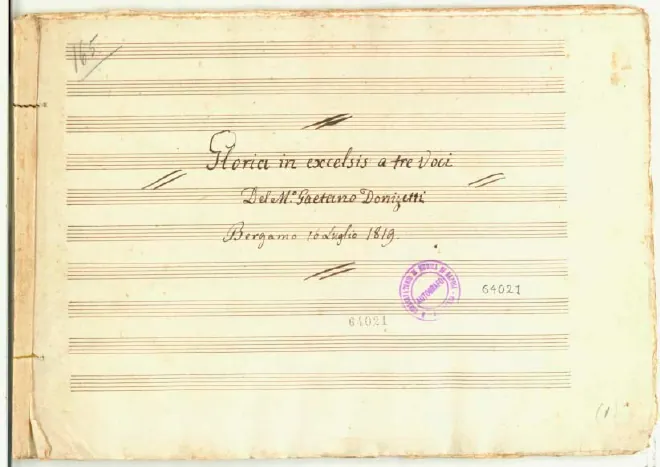 165.
Gloria in excelsis a tre Voci
Del M.º Gaetano Donizetti
Bergamo 16 Luglio 1819.
AUTOGRAFI
64021
64021
(1)